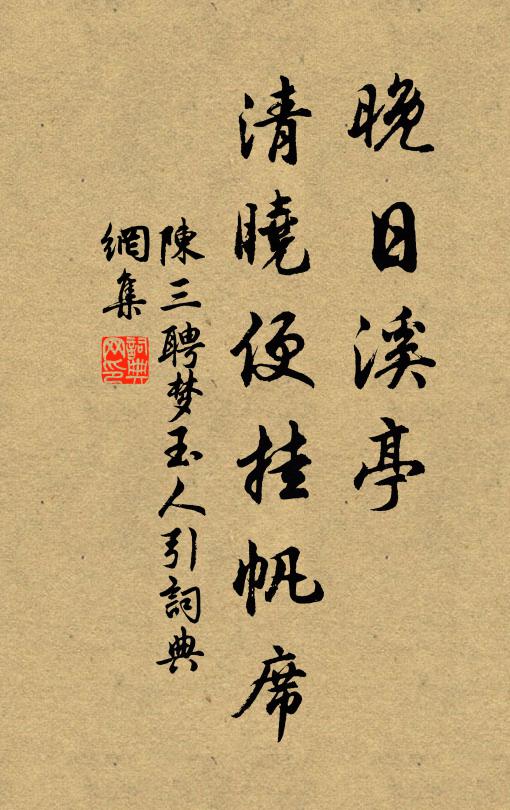 晚日溪亭
清曉便挂帆席
陳三聘梦玉人引詞典
網集
詞典
网印